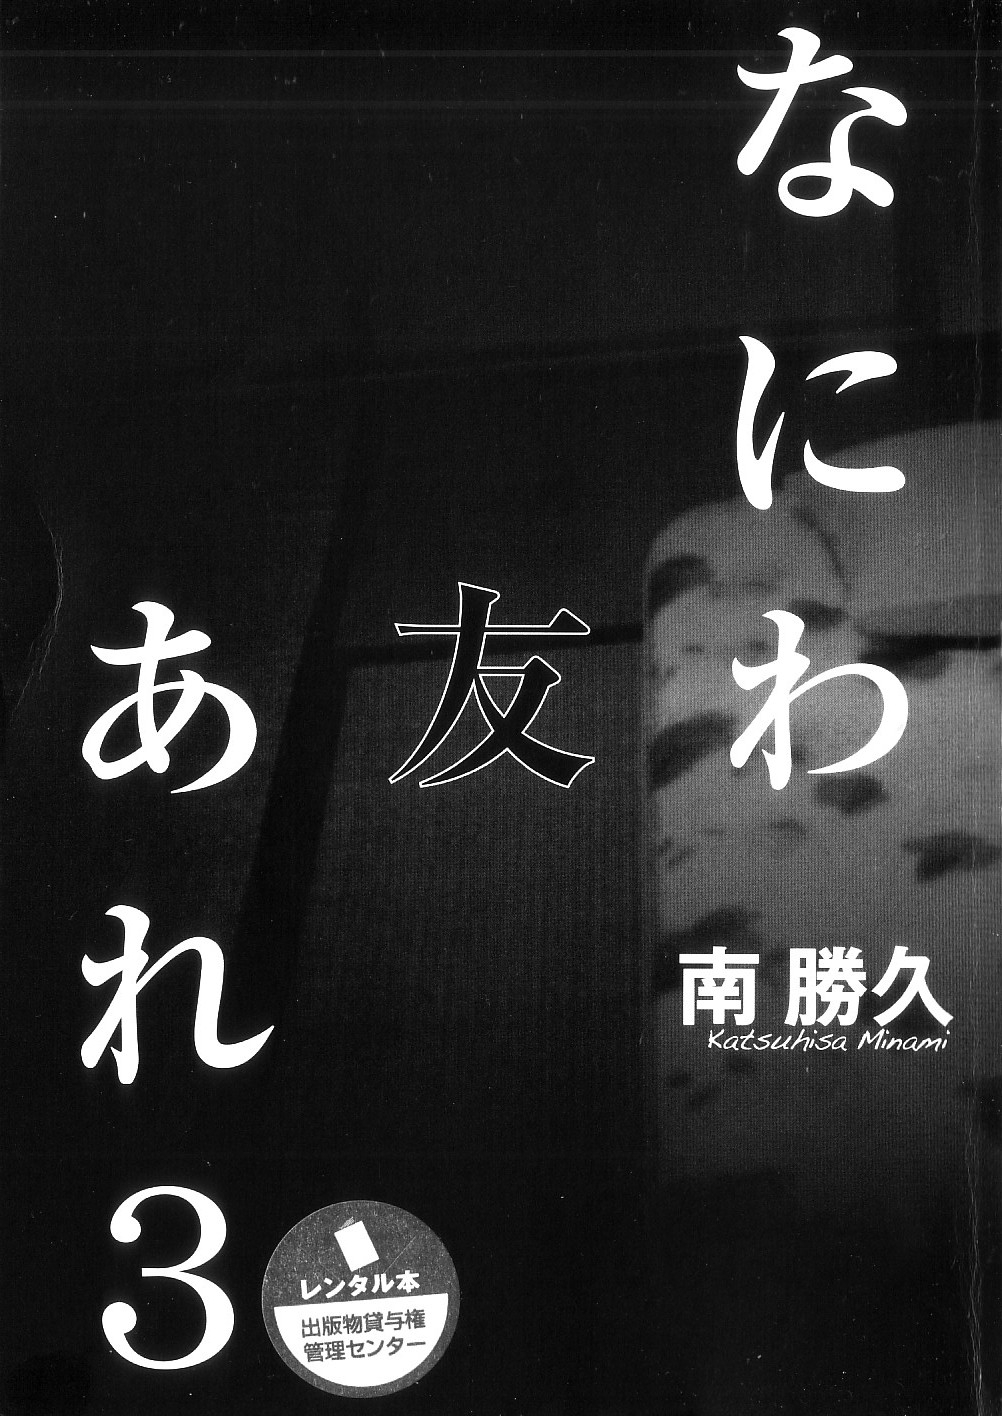 なにわ
友
あれ
3
南 勝久
Katsuhisa Minami
レンタル本
出版物貸与権
管理センター